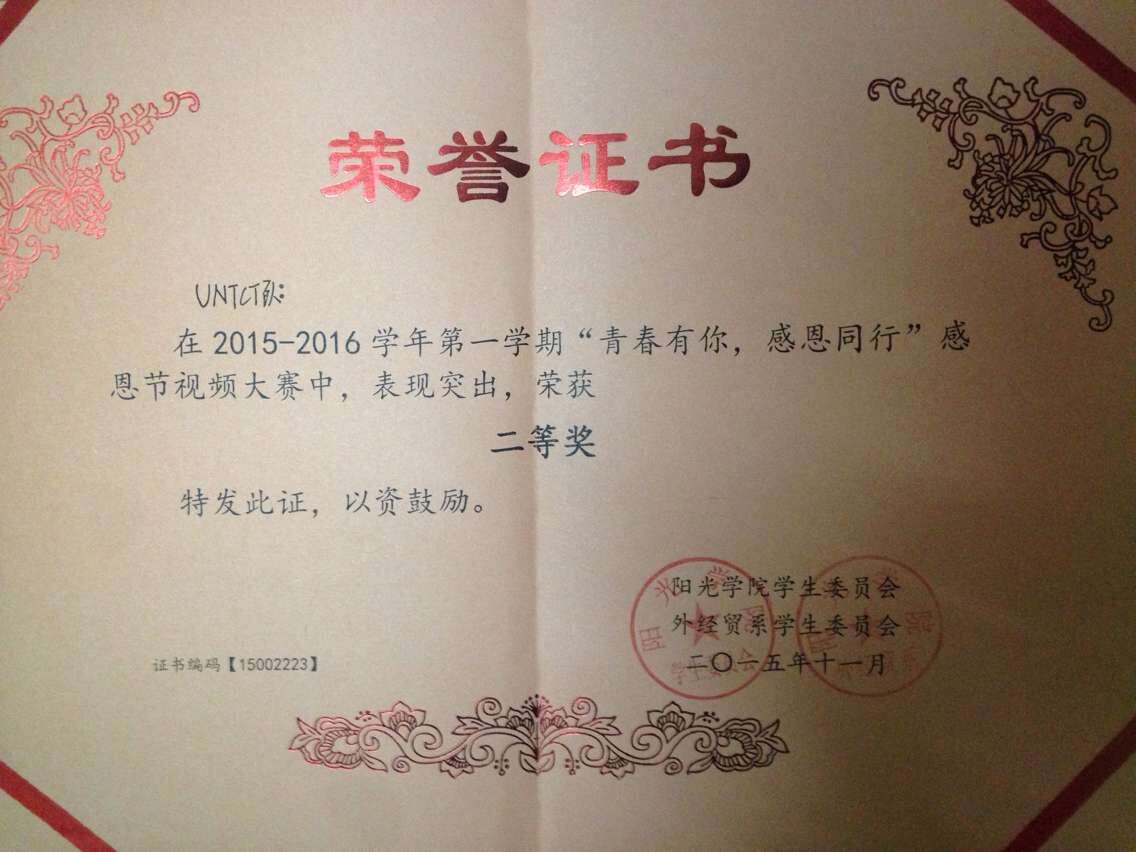 荣誉证书
UNTCT队:
在2015-2016学年第一学期“青春有你，感恩同行”感
恩节视频大赛中，表现突出，荣获
二等奖
特发此证，以资鼓励。
阳光学院学生委员会
外经贸系学生委员会
二〇一五年十一月
证书编码【15002223】
阳光学院
学生委员会